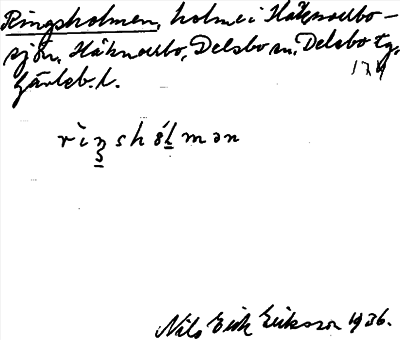 Ringsholmen, holme i Håknorbo-
sjön, Håknorbo, Delsbo sn, Delsbo tg,
174
Gävleb. l.
Nils Erik Eriksson 1936.